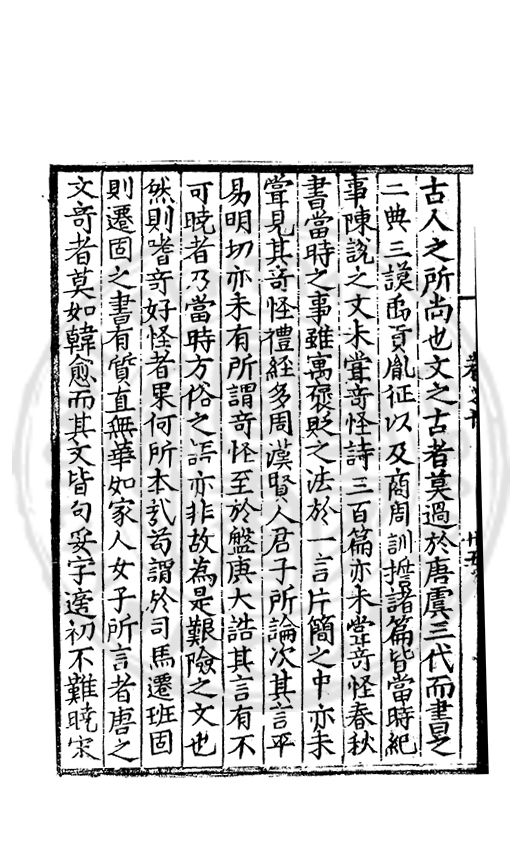 古人之所尚也文之古者莫過於唐虞三代而書之
二典三謨禹貢胤征以及商周訓誓諸篇皆當時紀
事陳說之文未甞竒怪詩三百篇亦未甞竒怪春秋
書當時之事雖寓褒貶之法於一言片簡之中亦未
甞見其竒怪禮經多周漢賢人君子所論次其言平
易明切亦未有所謂竒怪至於盤庚大誥其言有不
可曉者乃當時方俗之語亦非故為是艱險之文也
然則嗜竒好怪者果何所本哉苟謂於司馬遷班固
則遷固之書有質直無華如家人女子所言者唐之
文竒者莫如韓愈而其文皆句妥字適初不難曉宋